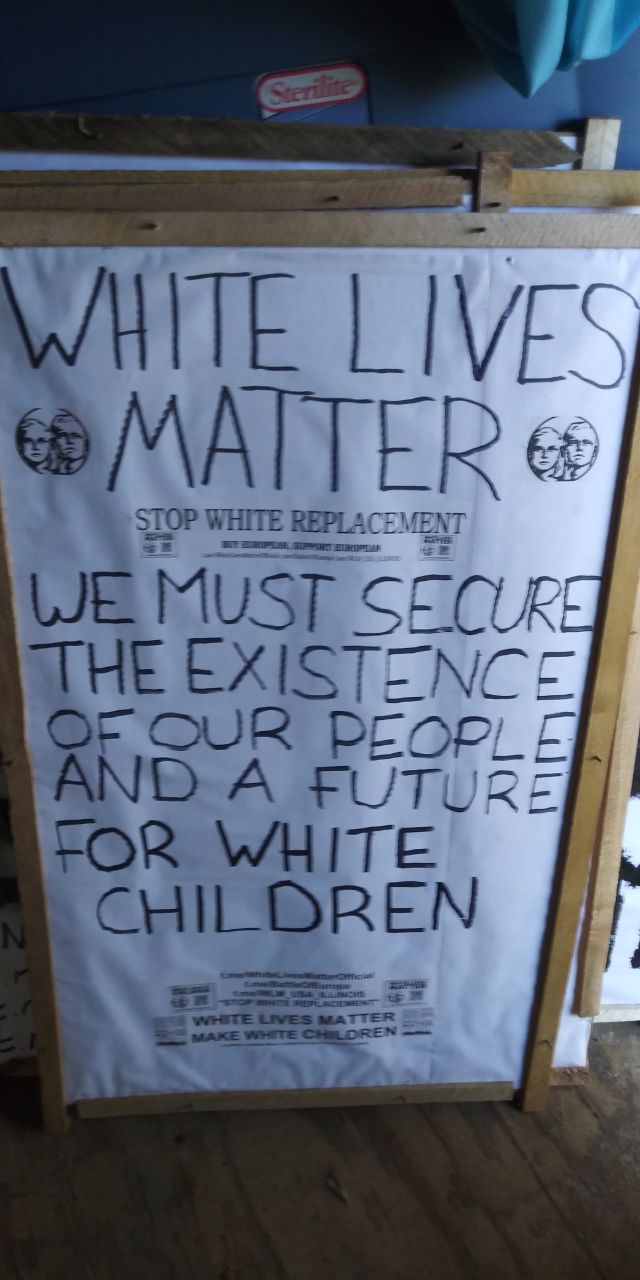 Sterilite
WHITE LIVES
MATTER
STOP WHITE REPLACEMENT
BUY EUROPEAN, SUPPORT EUROPEAN
WE MUST SECURE
THE EXISTENCE
OF OUR PEOPLE
AND A FUTURE
FOR WHITE
CHILDREN
t.me/WhiteLivesMatterOfficial
t.me/BattleOfEurope
t.me/WLM_USA_ILLINOIS
"STOP WHITE REPLACEMENT"
WHITE LIVES MATTER
MAKE WHITE CHILDREN